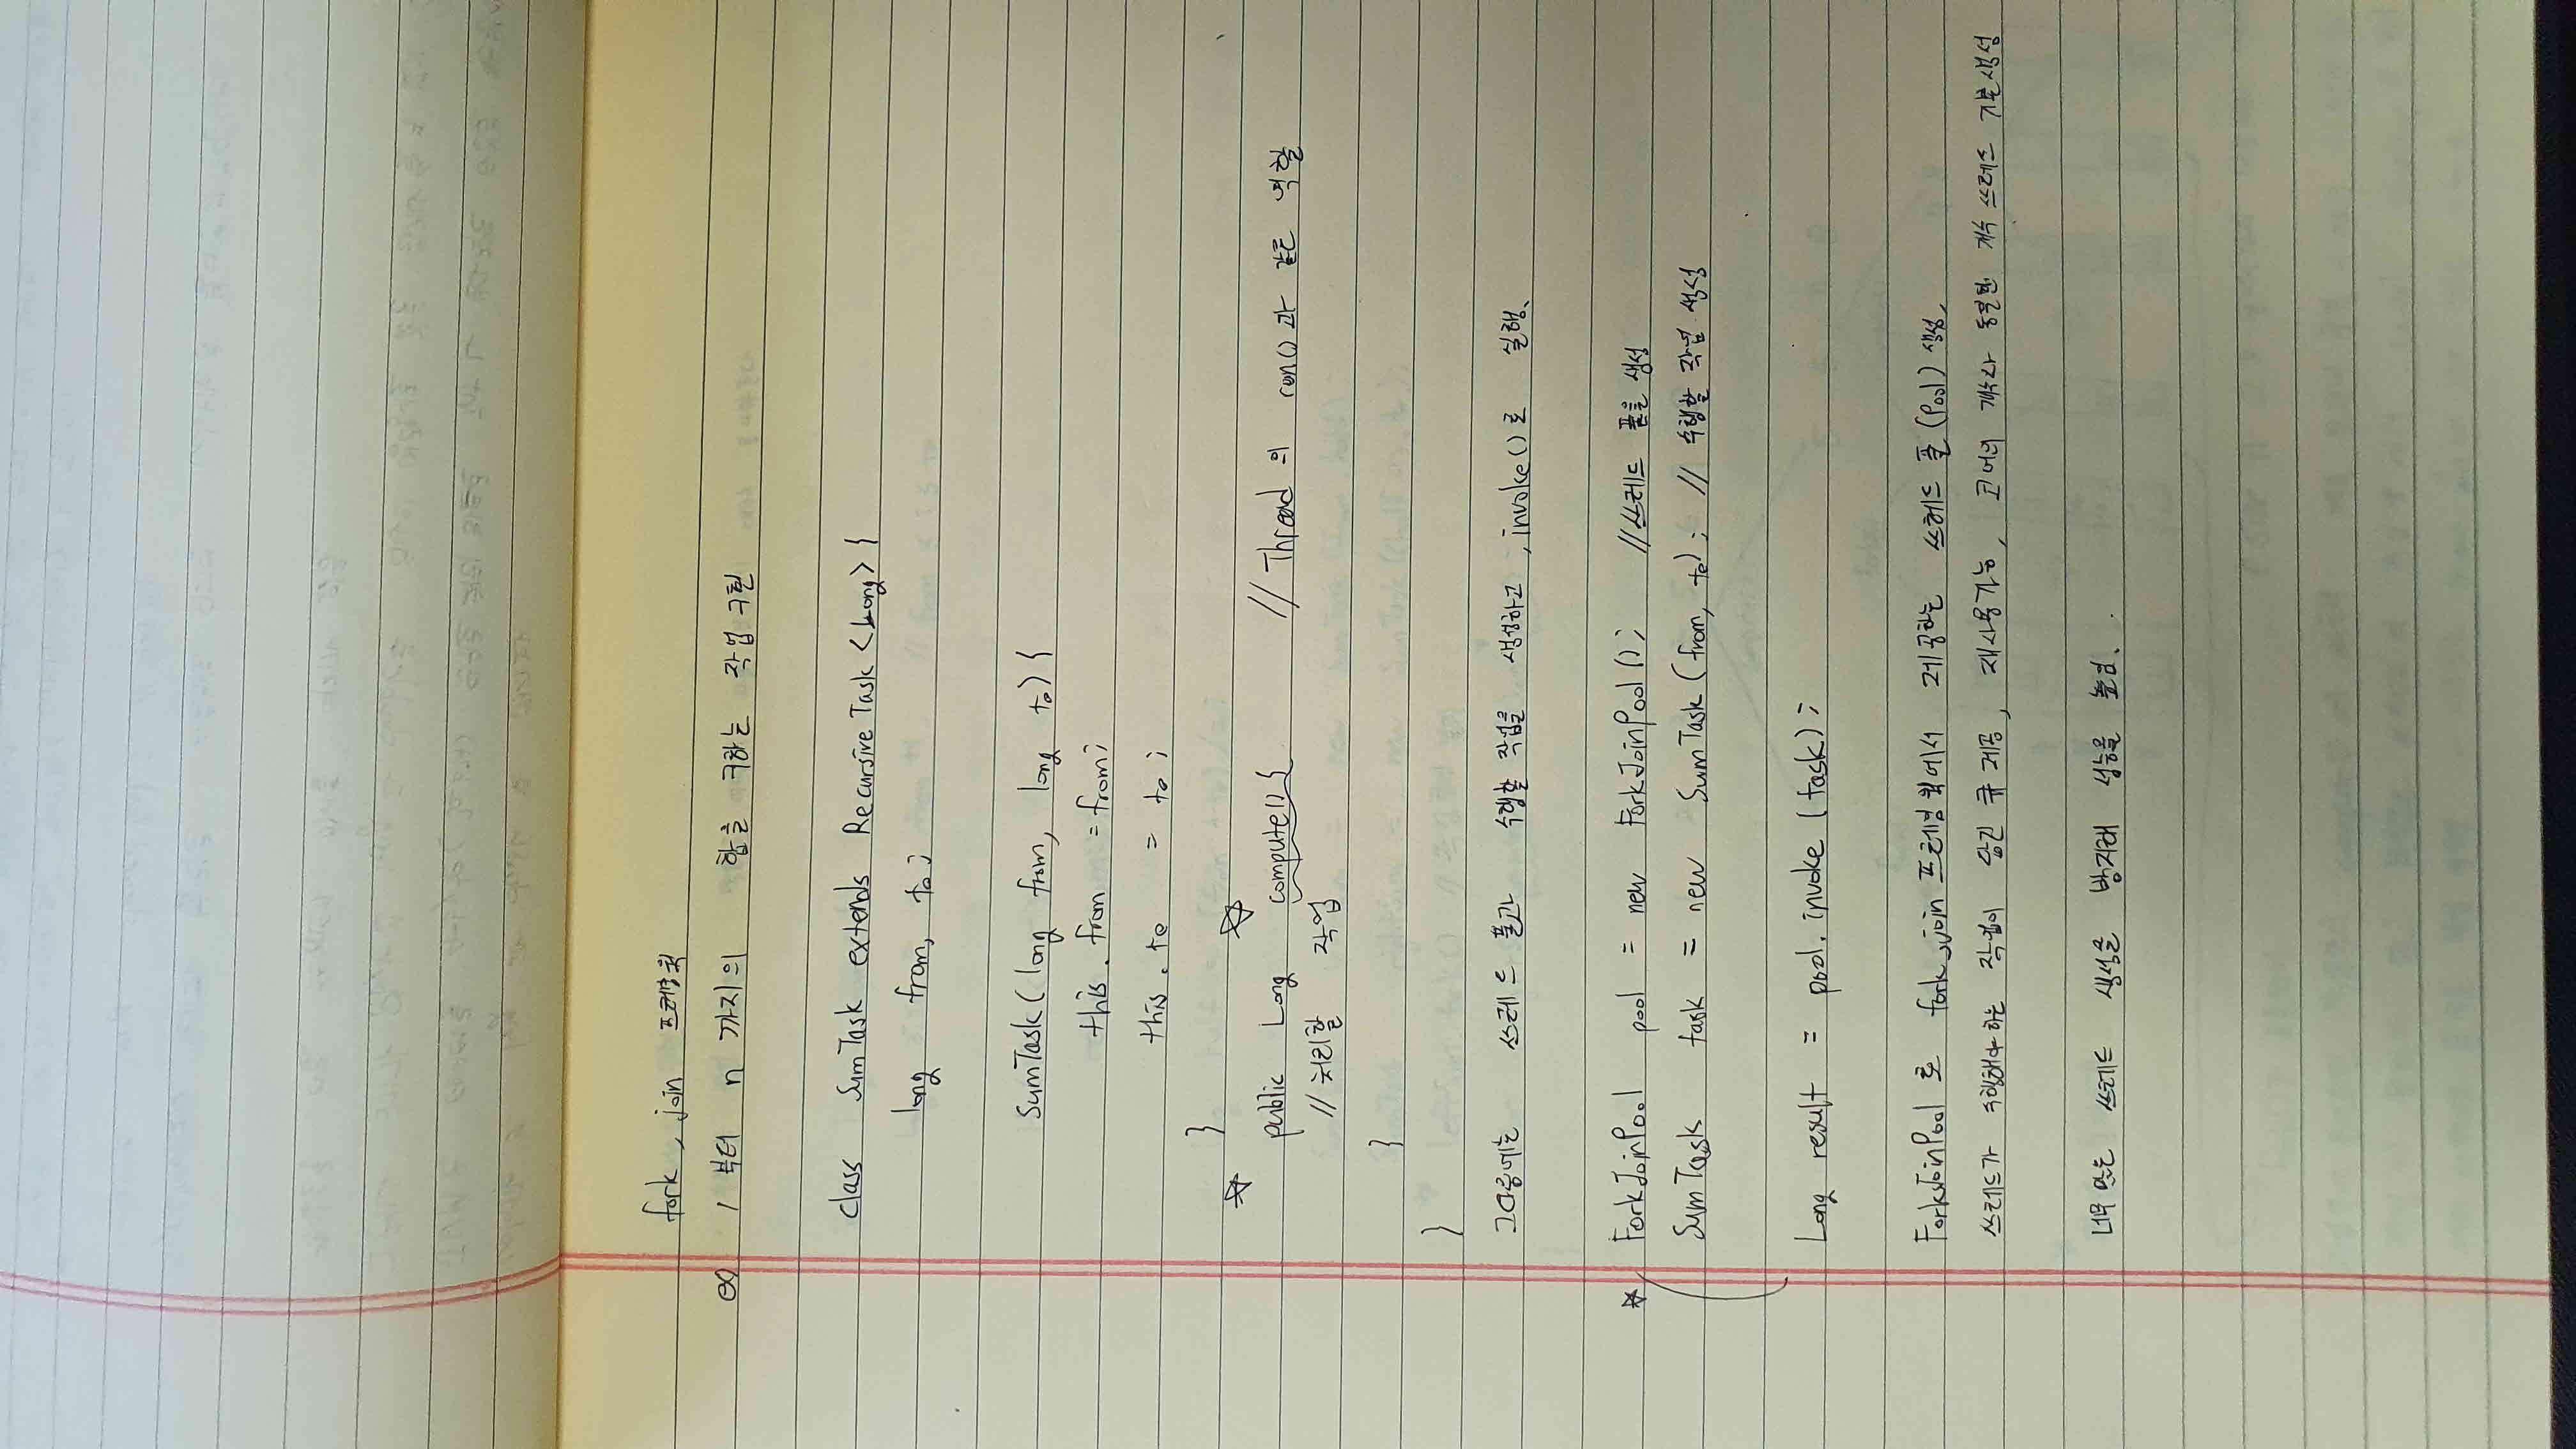 fork, join 프레임웍
ex) 1부터 n 까지의 합을 구하는 작업 구현
class SumTask extends RecursiveTask <Long> {
long from, to;
SumTask( long from, long to) {
this.from = from;
this.to = to;
}
public Long compute() { // Thread 의 run()과 같은 역할
// 처리할 작업
}
}
그다음에는 쓰레드 풀과 수행할 작업을 생성하고, invoke()로 실행.
ForkJoinPool pool = new ForkJoinPool(); //쓰레드 풀을 생성
SumTask task = new SumTask (from, to); // 수행할 작업 생성
Long result = pool.invoke (task);
ForkJoinPool 로 fork, join 프레임웍에서 제공하는 쓰레드 풀 (Pool) 생성,
쓰레드가 수행해야 하는 작업이 담긴 큐 제공, 재사용가능, 코어의 개수와 동일한 개수 쓰레드 기본생성
너무 많은 쓰레드 생성을 방지해 성능을 높임.